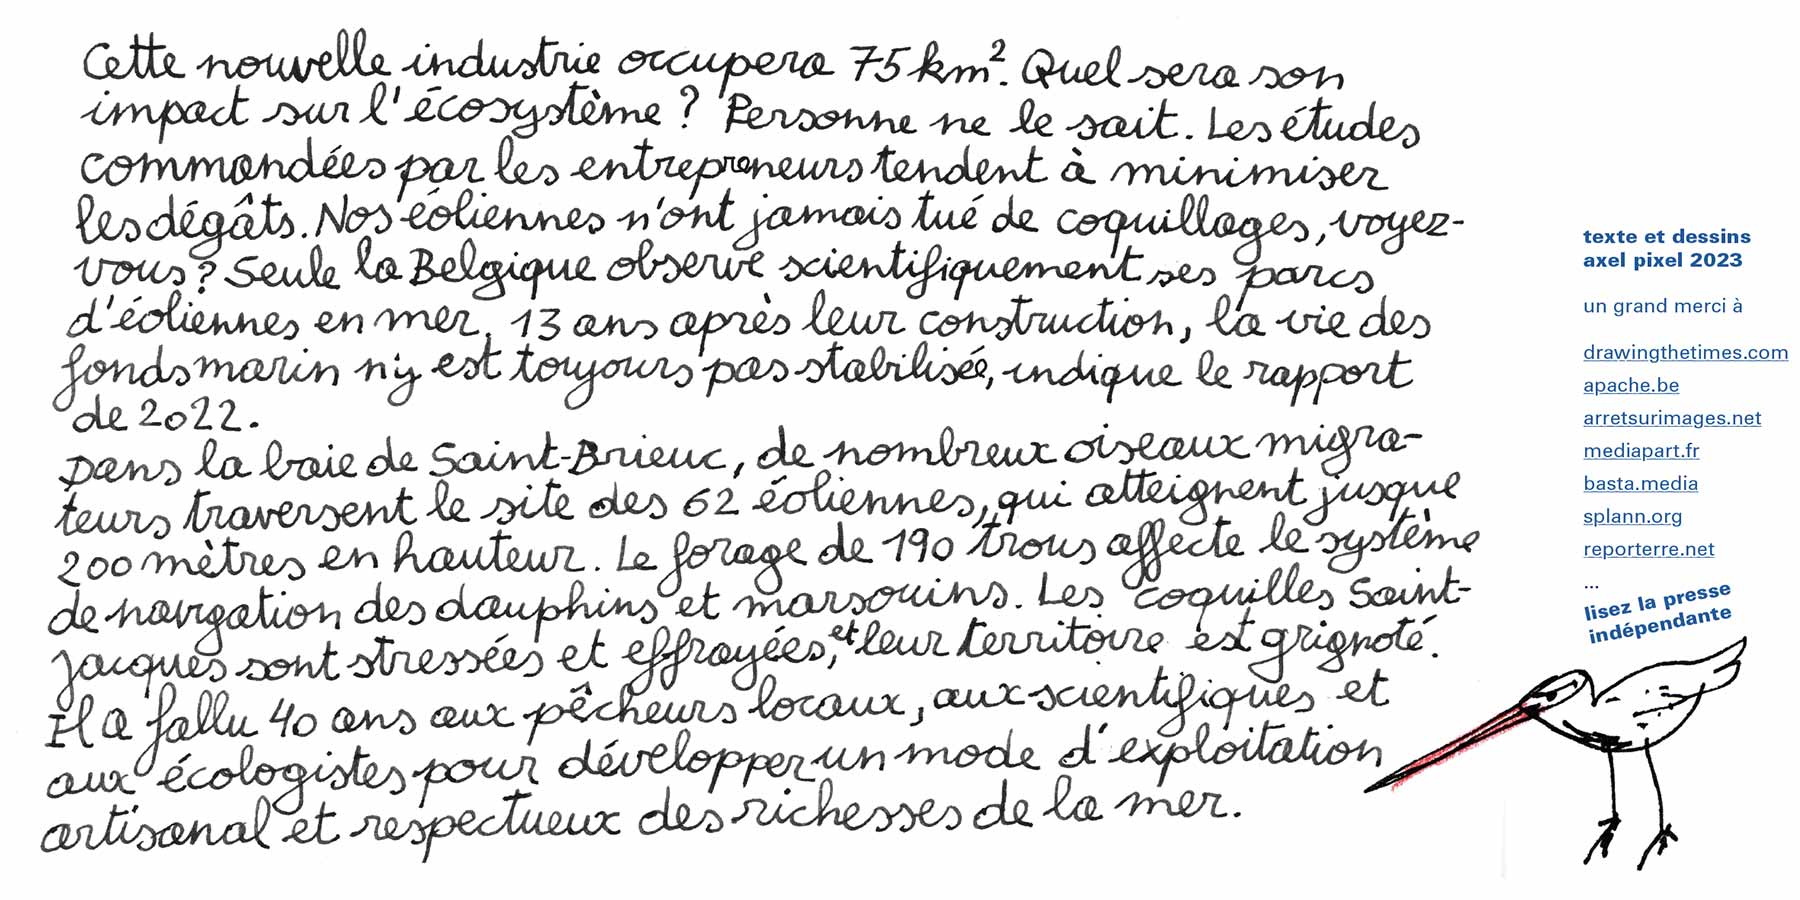 Cette nouvelle industrie occupera 75 km². Quel sera son
impact sur l'écosystème ? Personne ne le sait. Les études
commandées par les entrepreneurs tendent à minimiser
les dégâts. Nos éoliennes n'ont jamais tué de coquillages, voyez-
vous ? Seule la Belgique observe scientifiquement ses parcs
d'éoliennes en mer. 13 ans après leur construction, la vie des
fonds marin n'y est toujours pas stabilisée, indique le rapport
de 2022.
Dans la baie de Saint-Brieuc, de nombreux oiseaux migra-
teurs traversent le site des 62 éoliennes, qui atteignent jusque
200 mètres en hauteur. Le forage de 190 trous affecte le système
de navigation des dauphins et marsouins. Les coquilles Saint-
Jacques sont stressées et effrayées, et leur territoire est grignoté.
Il a fallu 40 ans aux pêcheurs locaux, aux scientifiques et
aux écologistes pour développer un mode d'exploitation
artisanal et respectueux des richesses de la mer.
texte et dessins
axel pixel 2023
un grand merci à
drawingthetimes.com
apache.be
arretsurimages.net
mediapart.fr
basta.media
splann.org
reporterre.net
...
lisez la presse
indépendante